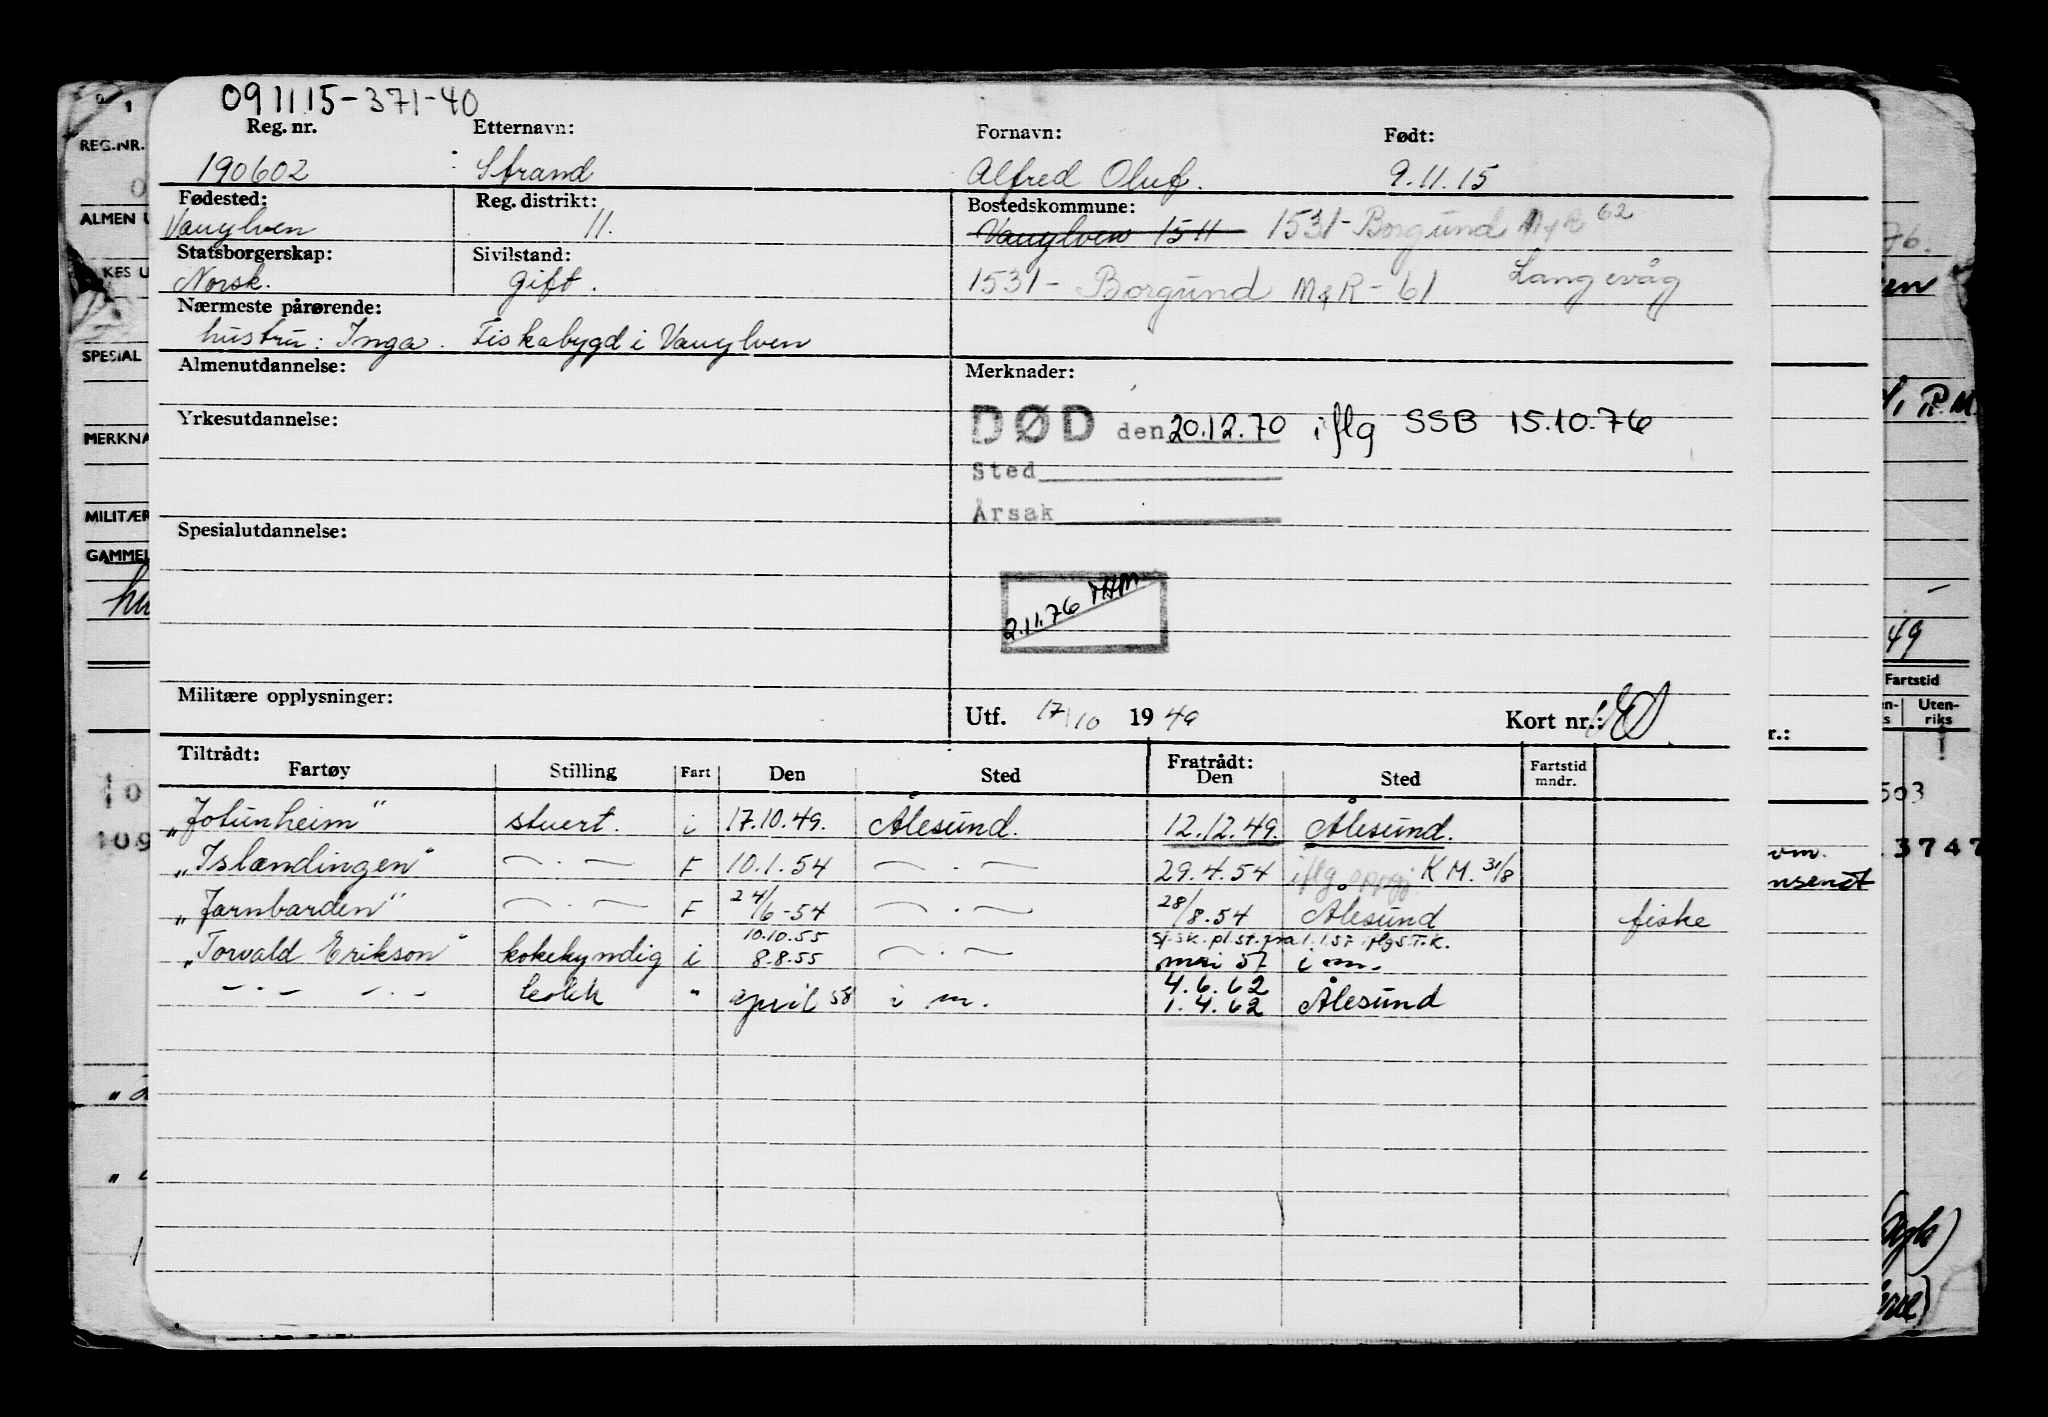 091115-371-40
Reg. nr. Etternavn: Fornavn: Født:
190602 Strand Alfred Oluf. 9.11.15
Fødested: Reg. distrikt: Bostedskommune:
Vanylven 11. Vanylven 1511 1531-Borgund M&R 62
Statsborgerskap: Sivilstand:
Norsk. Gift. 1531- Borgund M&R-61 Langevåg
Nærmeste pårørende:
hustru: Inga. Fiskabygd i Vanylven
Almenutdannelse: Merknader:
Yrkesutdannelse: DØD den 20.12.70 iflg SSB 15.10.76
Sted
Årsak
Spesialutdannelse:
2.11.76
Militære opplysninger: Utf. 17/10 1949 Kort nr.:
Tiltrådt: Fratrådt:
Fartøy Stilling Fart Den Sted Den Sted Fartstid mndr.
"Jotunheim" stuert. i 17.10.49. Ålesund. 12.12.49. Ålesund.
"Islendingen" — . — F 10.1.54 — . — 29.4.54 iflg oppgj. K M. 31/8
"Jarnbarden" — . — F 24/6-54 — . — 28/8.54 Ålesund fiske
10.10.55 sj.sk. pl.st. fra 1.1.57 iflg S.T.K.
"Torvald Erikson" kokekyndig i 8.8.55 — . — mai 57 i m.
4.6.62
— . — — . — kokk " april 58 i m. 1.4.62 Ålesund
REG.NR.
ALMEN U
KES U
SPESIAL
MERKNA
MILITÆR
GAMMEL
hu
109
49
Fartstid
Uten-
riks
r.:
503
3747